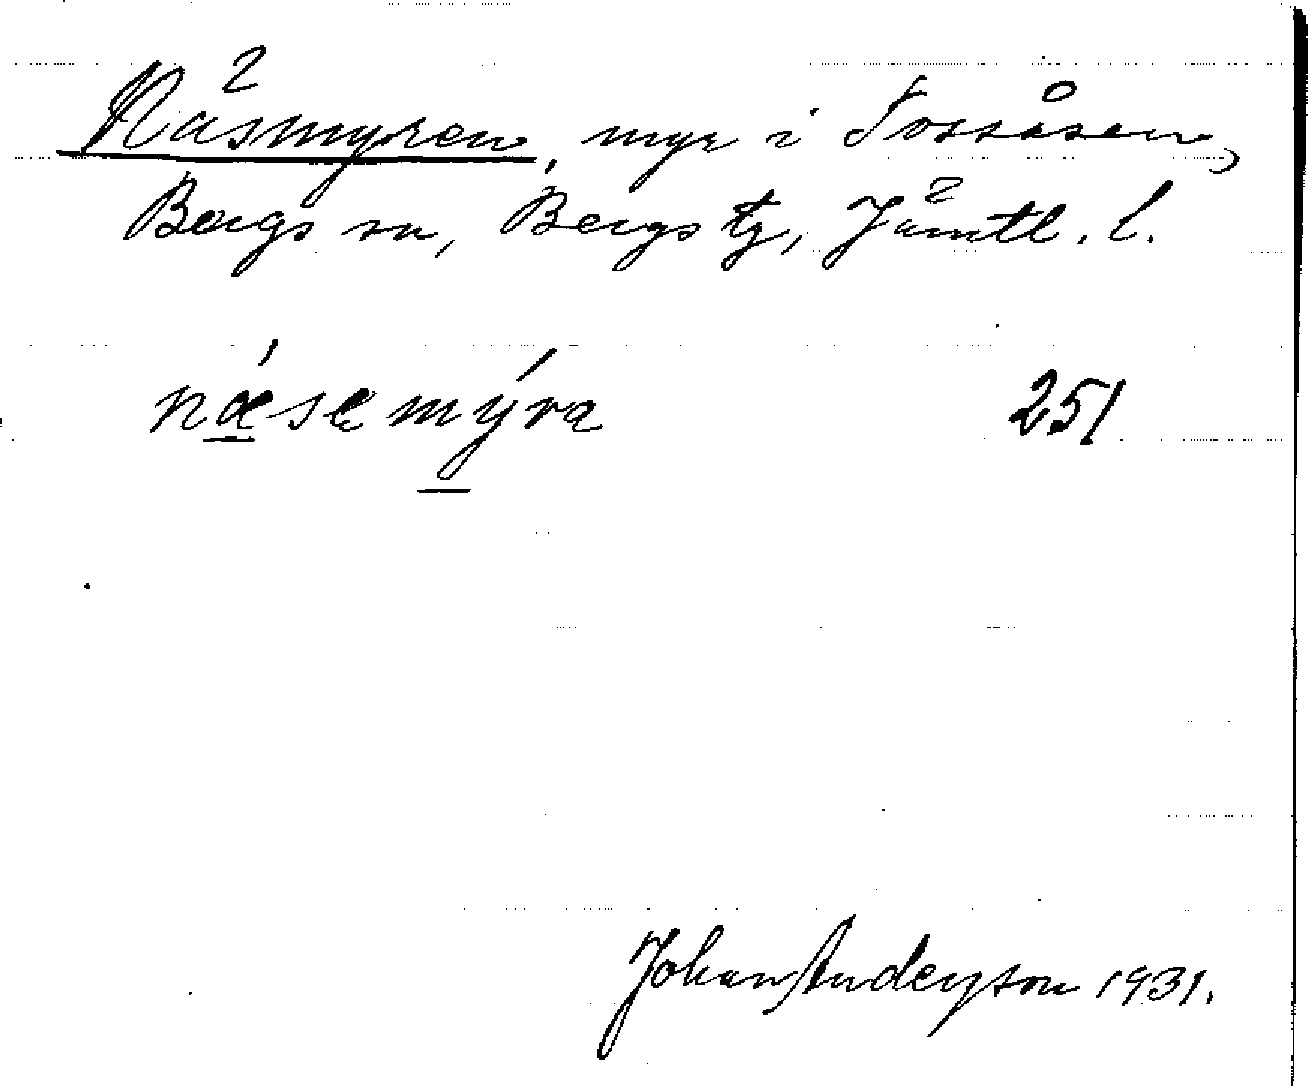 Näsmyren, myr i Tossåsen,
Bergs sn, Bergs tg, Jämtl. l.
nǽ̲sɐmý̲ra 251
Johan Anderson 1931.